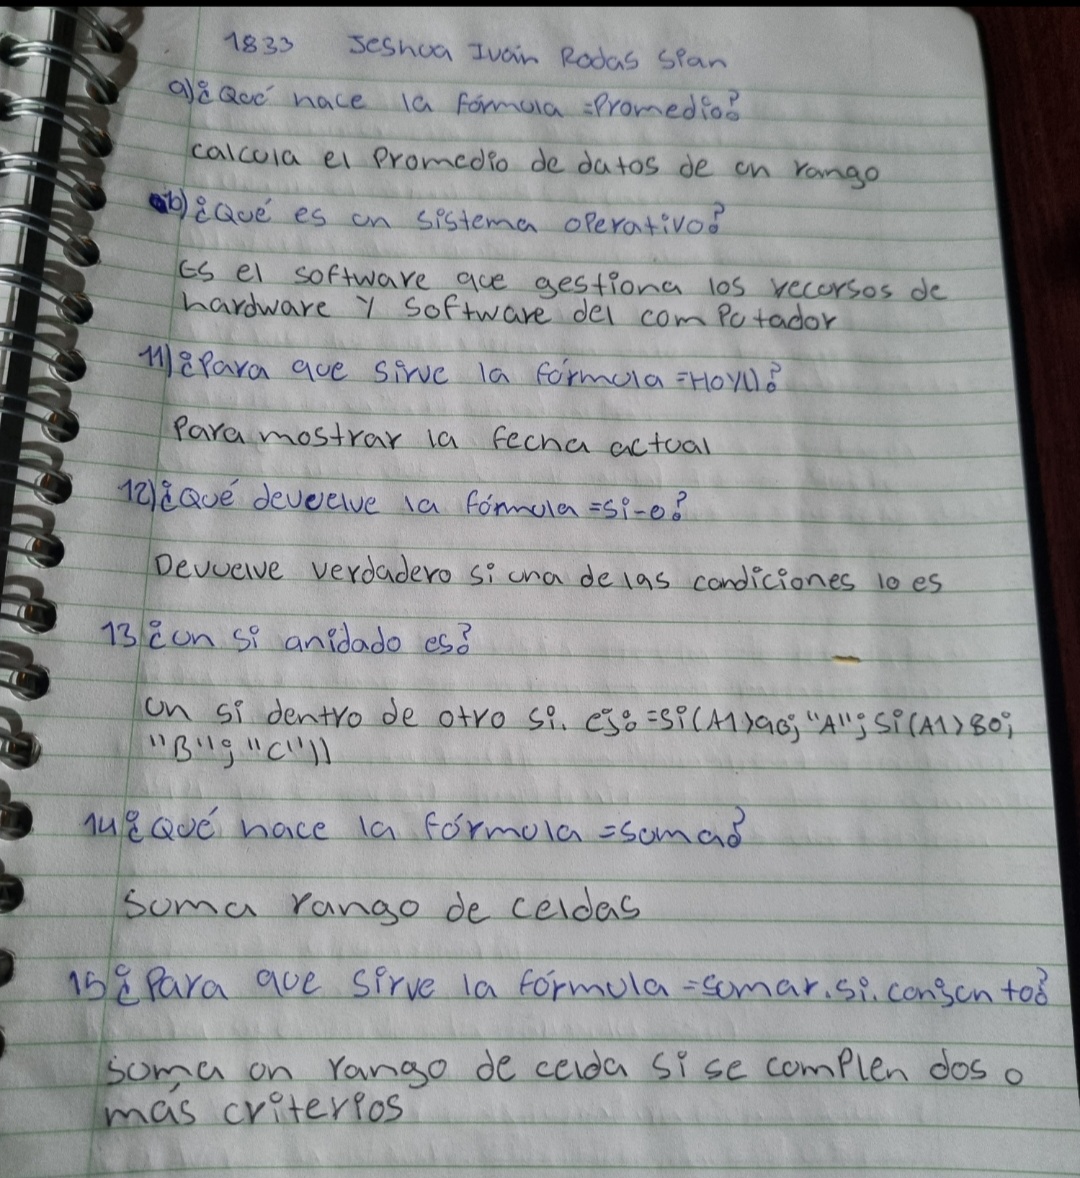 1833 Jeshua Iván Rodas Span
a)¿Qué hace la fórmula =Promedio?
calcula el Promedio de datos de un rango
b)¿Qué es un sistema operativo?
Es el software que gestiona los recursos de
hardware y software del computador
11)¿Para que sirve la fórmula =HOY()?
Para mostrar la fecha actual
12)¿Qué devuelve la fórmula =si-o?
Devuelve verdadero si una de las condiciones lo es
13¿un si anidado es?
un si dentro de otro si. ej: =si(A1>90; "A"; si(A1>80;
"B"; "C"))
14¿Qué hace la fórmula =suma?
suma rango de celdas
15¿Para que sirve la fórmula =sumar.si.conjunto?
suma un rango de celda si se complen dos o
más criterios